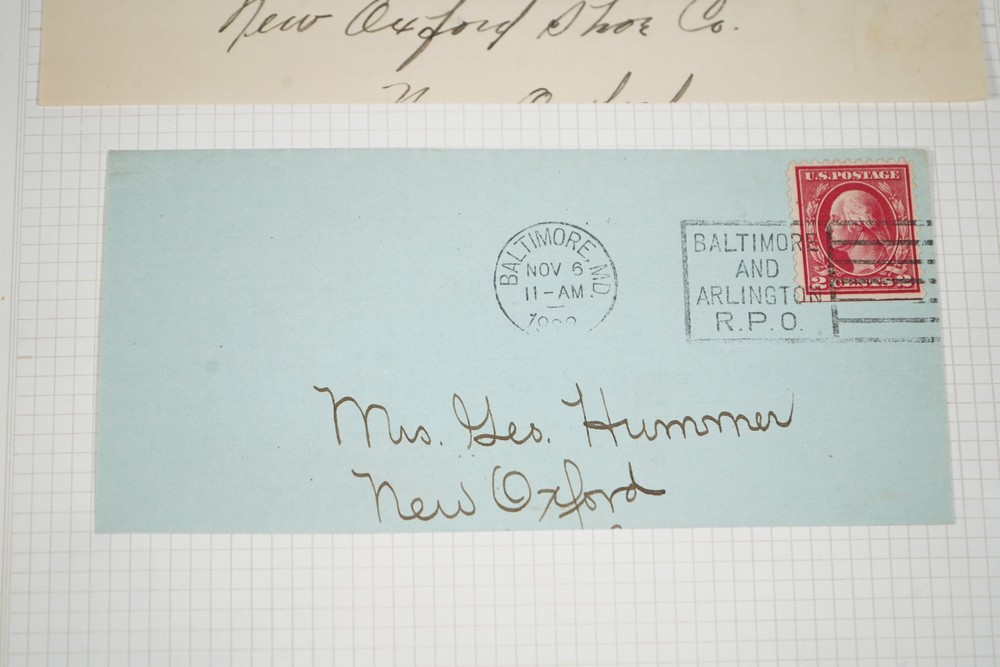 New Oxford Shoe Co.
U.S. POSTAGE
2 CENTS 2
BALTIMORE, MD.
NOV 6
11-AM.
BALTIMORE
AND
ARLINGTON
R.P.O.
Mrs. Geo. Hummer
New Oxford